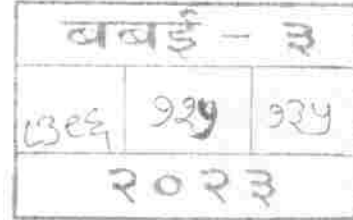 बबई - ३
७३९६ १२५ १३५
२०२३